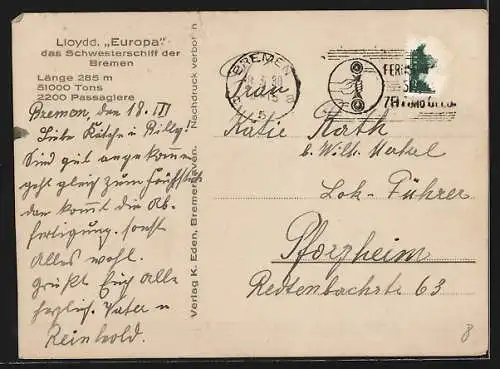 Lloydd. „Europa"
das Schwesterschiff der
Bremen
Länge 285 m
51000 Tons
2200 Passagiere
Bremen, den 18. III
Liebe Käthe u. Willy!
Sind gut angekommen
geht gleich zum Frühstück
dan kommt die Ab-
fertigung. sonst
Alles wohl.
Grüßt Euch Alle
herzlich. Vater u
Reinhold.
Verlag K. Eden, Bremerhaven. Nachdruck verboten
BREMEN
5
Frau
Katie Roth
b. Wilh. Merkel
Lok-Führer
Pforzheim
Redtenbachstr 63
8